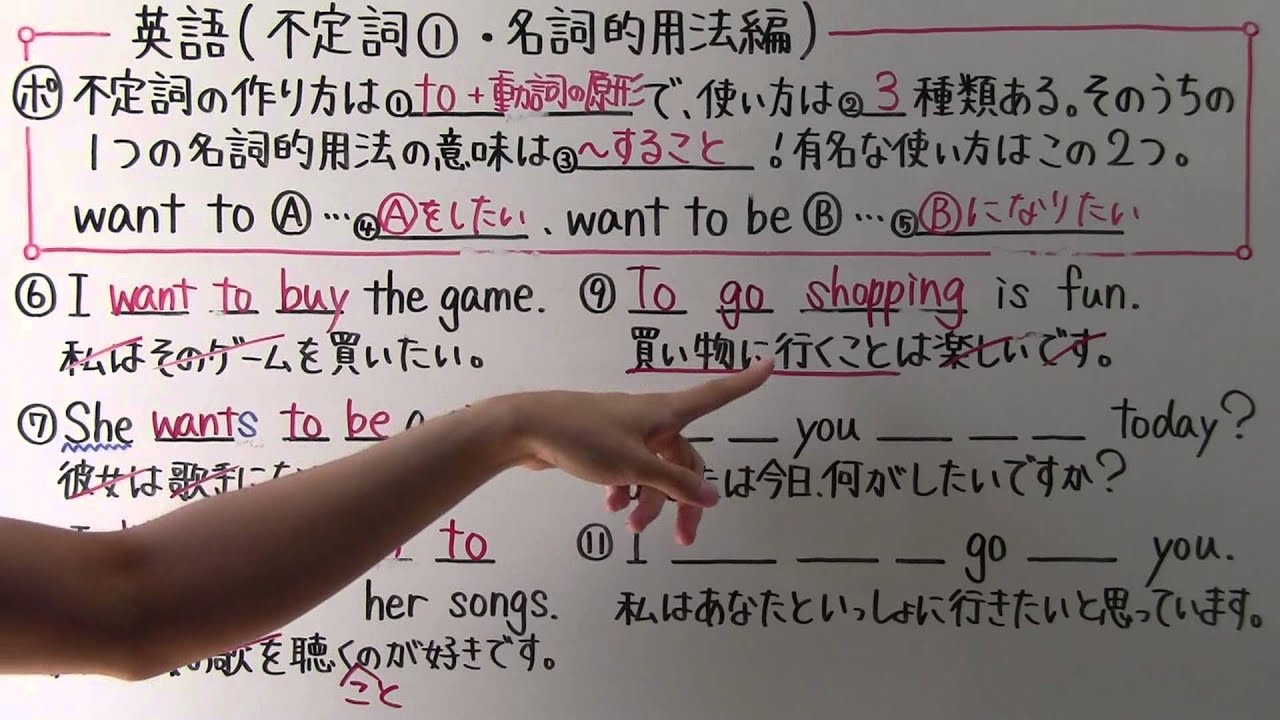 英語(不定詞①・名詞的用法編)
ポ 不定詞の作り方は①to+動詞の原形で、使い方は②3種類ある。そのうちの
1つの名詞的用法の意味は③~すること!有名な使い方はこの2つ。
want to Ⓐ…④Ⓐをしたい、want to be Ⓑ…⑤Ⓑになりたい
⑥ I want to buy the game.
私はそのゲームを買いたい。
⑦ She wants to be
彼女は歌手にな
to
her songs.
歌を聴くのが好きです。
こと
⑨ To go shopping is fun.
買い物に行くことは楽しいです。
__ __ you __ __ __ today?
は今日、何がしたいですか?
⑪ I __ __ __ go __ you.
私はあなたといっしょに行きたいと思っています。